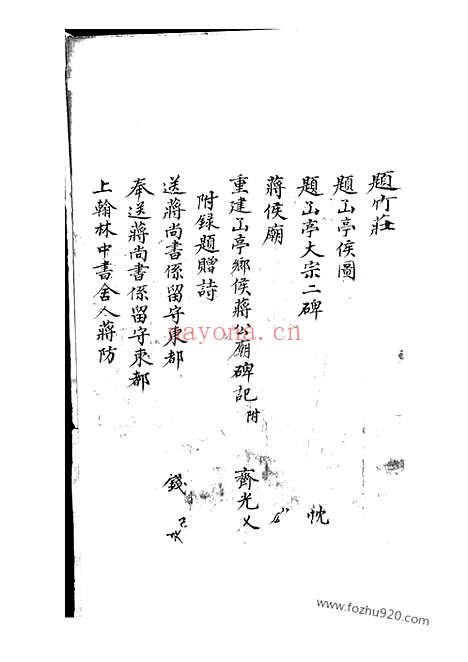 題竹莊
題函亭侯圖
題函亭大宗二碑 忱
蔣侯廟
重建函亭鄉侯蔣公廟碑記 附 齊光乂
附録題贈詩
送蔣尚書係留守東都 錢
奉送蔣尚書係留守東都
上翰林中書舍人蔣防
nayona.cn
www.fozhu920.com